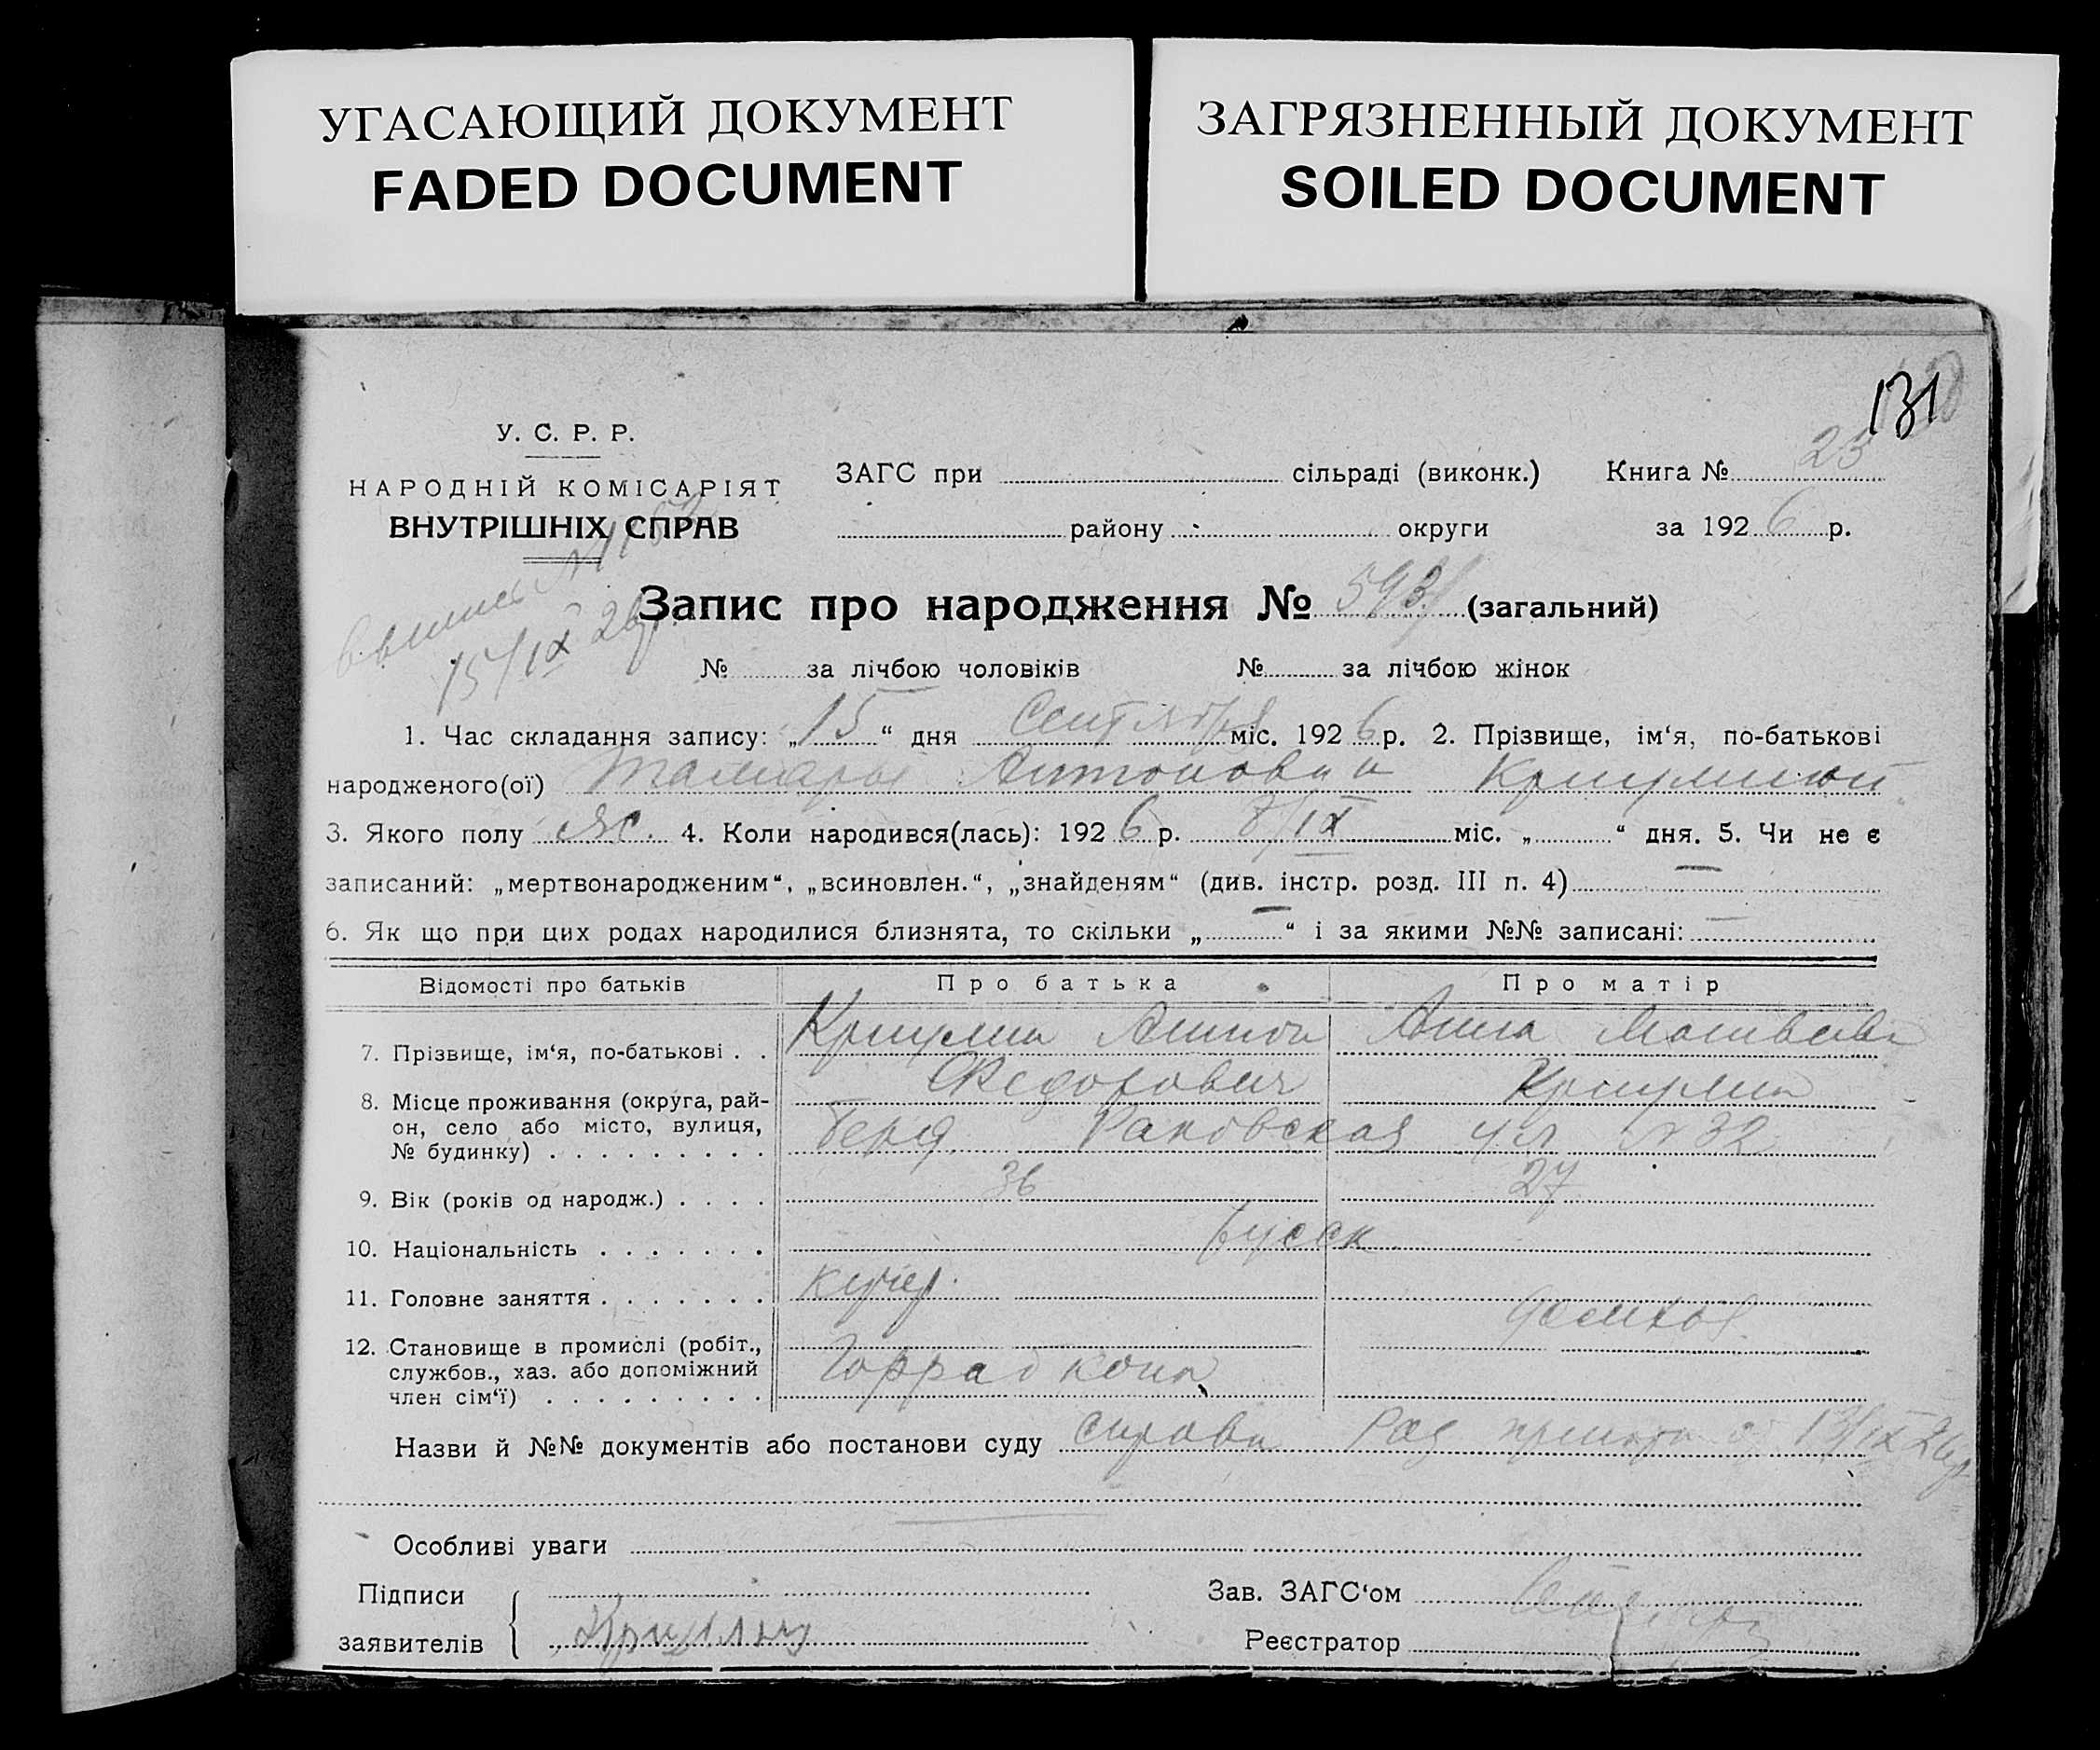 УГАСАЮЩИЙ ДОКУМЕНТ
FADED DOCUMENT
ЗАГРЯЗНЕННЫЙ ДОКУМЕНТ
SOILED DOCUMENT
131
У. С. Р. Р.
НАРОДНІЙ КОМІСАРІЯТ
ВНУТРІШНІХ СПРАВ
ЗАГС при сільраді (виконк.) Книга № 25
району округи за 1926 р.
15/IX 26
Запис про народження № (загальний)
№ за лічбою чоловіків № за лічбою жінок
1. Час складання запису: „15“ дня Сентября міс. 1926 р. 2. Прізвище, ім‘я, по-батькові
народженого(ої) Тамара Антоновна
3. Якого полу ж. 4. Коли народився(лась): 1926 р. 8/IX міс. „ “ дня. 5. Чи не є
записаний: „мертвонародженим“, „всиновлен.“, „знайденям“ (див. інстр. розд. III п. 4) —
6. Як що при цих родах народилися близнята, то скільки „—“ і за якими №№ записані: —
Відомості про батьків Про батька Про матір
7. Прізвище, ім‘я, по-батькові . . Антон Анна
Федорович
8. Місце проживання (округа, рай-
он, село або місто, вулиця,
№ будинку) . . . . . . . . . Берд. Раковская ул № 32
9. Вік (років од народж.) . . . . 36 27
10. Національність . . . . . . . русск
11. Головне заняття . . . . . . . кучер.
12. Становище в промислі (робіт.,
службов., хаз. або допоміжний
член сім‘ї) . . . . . . . . .
Назви й №№ документів або постанови суду справка 13/IX 26
Особливі уваги
Підписи
заявителів
Зав. ЗАГС‘ом
Реєстратор